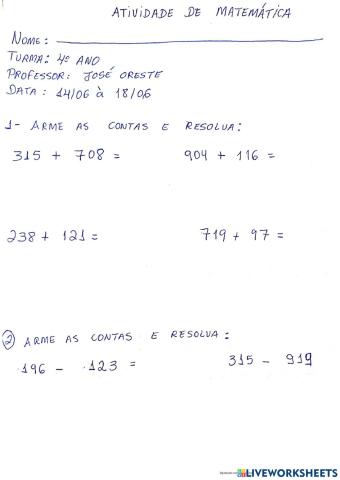 ATIVIDADE DE MATEMÁTICA
NOME:
TURMA: 4º ANO
PROFESSOR: JOSÉ ORESTE
DATA: 14/06 à 18/06
1- ARME AS CONTAS E RESOLVA:
315 + 708 = 904 + 116 =
238 + 121 = 719 + 97 =
2 ARME AS CONTAS E RESOLVA:
196 - 123 = 315 - 919
LIVEWORKSHEETS